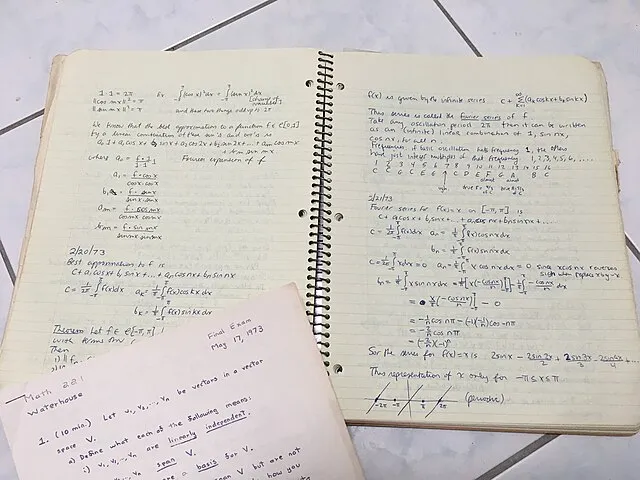 1·1 = 2π Ex ∫(cos x)² dx = ∫(sin x)² dx
||cos mx||² = π
||sin mx||² = π and these two things add up to 2π
We know that the best approximation to a function f ∈
by a linear combination of the
where a₀ = f·1 / 1·1 Fourier expansion of f
a₁ = f·cos x / cos x·cos x
b₁ = f·sin x / sin x·sin x
aₘ = f·cos mx / cos mx·cos mx
bₘ = f·sin mx / sin mx·sin mx
2/20/73
Best approximation to f is
C + a₁ cos x + b₁ sin x + ... + aₙ cos nx + bₙ sin nx
C = 1/2π ∫ f(x) dx aₖ = 1/π ∫ f(x) cos kx dx
bₖ = 1/π ∫ f(x) sin kx dx
Theorem Let f ∈ C[-π, π]
with terms
Then
f(x) is given by the infinite series C + Σ (aₖ cos kx + bₖ sin kx)
This series is called the Fourier series of f.
Take any oscillation period 2π then it can be written
as an (infinite) linear combination of 1, sin nx,
cos nx, for all n.
Frequencies if basic oscillation has frequency 1, the others
have just integer multiples of that frequency 1, 2, 3, 4, 5, 6, ...
1 2 3 4 5 6 7 8 9 10 11 12 13 14 15 16
C C G C E G C D E F G A B C
2/21/73
Fourier series for f(x) = x on [-π, π] is
C + a₁ cos x + b₁ sin x + ... + aₙ cos nx + bₙ sin nx + ...
C = 1/2π ∫ f(x) dx aₙ = 1/π ∫ f(x) cos nx dx
bₙ = 1/π ∫ f(x) sin nx dx
C = 1/2π ∫ x dx = 0 aₙ = 1/π ∫ x cos nx dx = 0 since x cos nx reverses
sign when replace x by -x
bₙ = 1/π ∫ x sin nx dx = 1/π [x(-cos nx / n)] - 1/π ∫ -cos nx / n dx
= [-cos nx / n] - 0
= -1/n cos nπ - (-1)(-1/n) cos -nπ
= -2/n cos nπ
= (-2/n)(-1)ⁿ
So the series for f(x) = x is 2 sin x - 2 sin 2x / 2 + 2 sin 3x / 3 - 2 sin 4x / 4 ...
This representation of x only for -π ≤ x ≤ π
-2π -π π 2π (periodic)
Final Exam
May 17, 1973
Math 221
Waterhouse
1. (10 min) Let v₁, v₂, ..., vₙ be vectors in a vector
space V.
a) Define what each of the following means:
i) v₁, v₂, ..., vₙ are linearly independent.
v₁, v₂, ..., vₙ span V.
are a basis for V.
span V but are not
how you